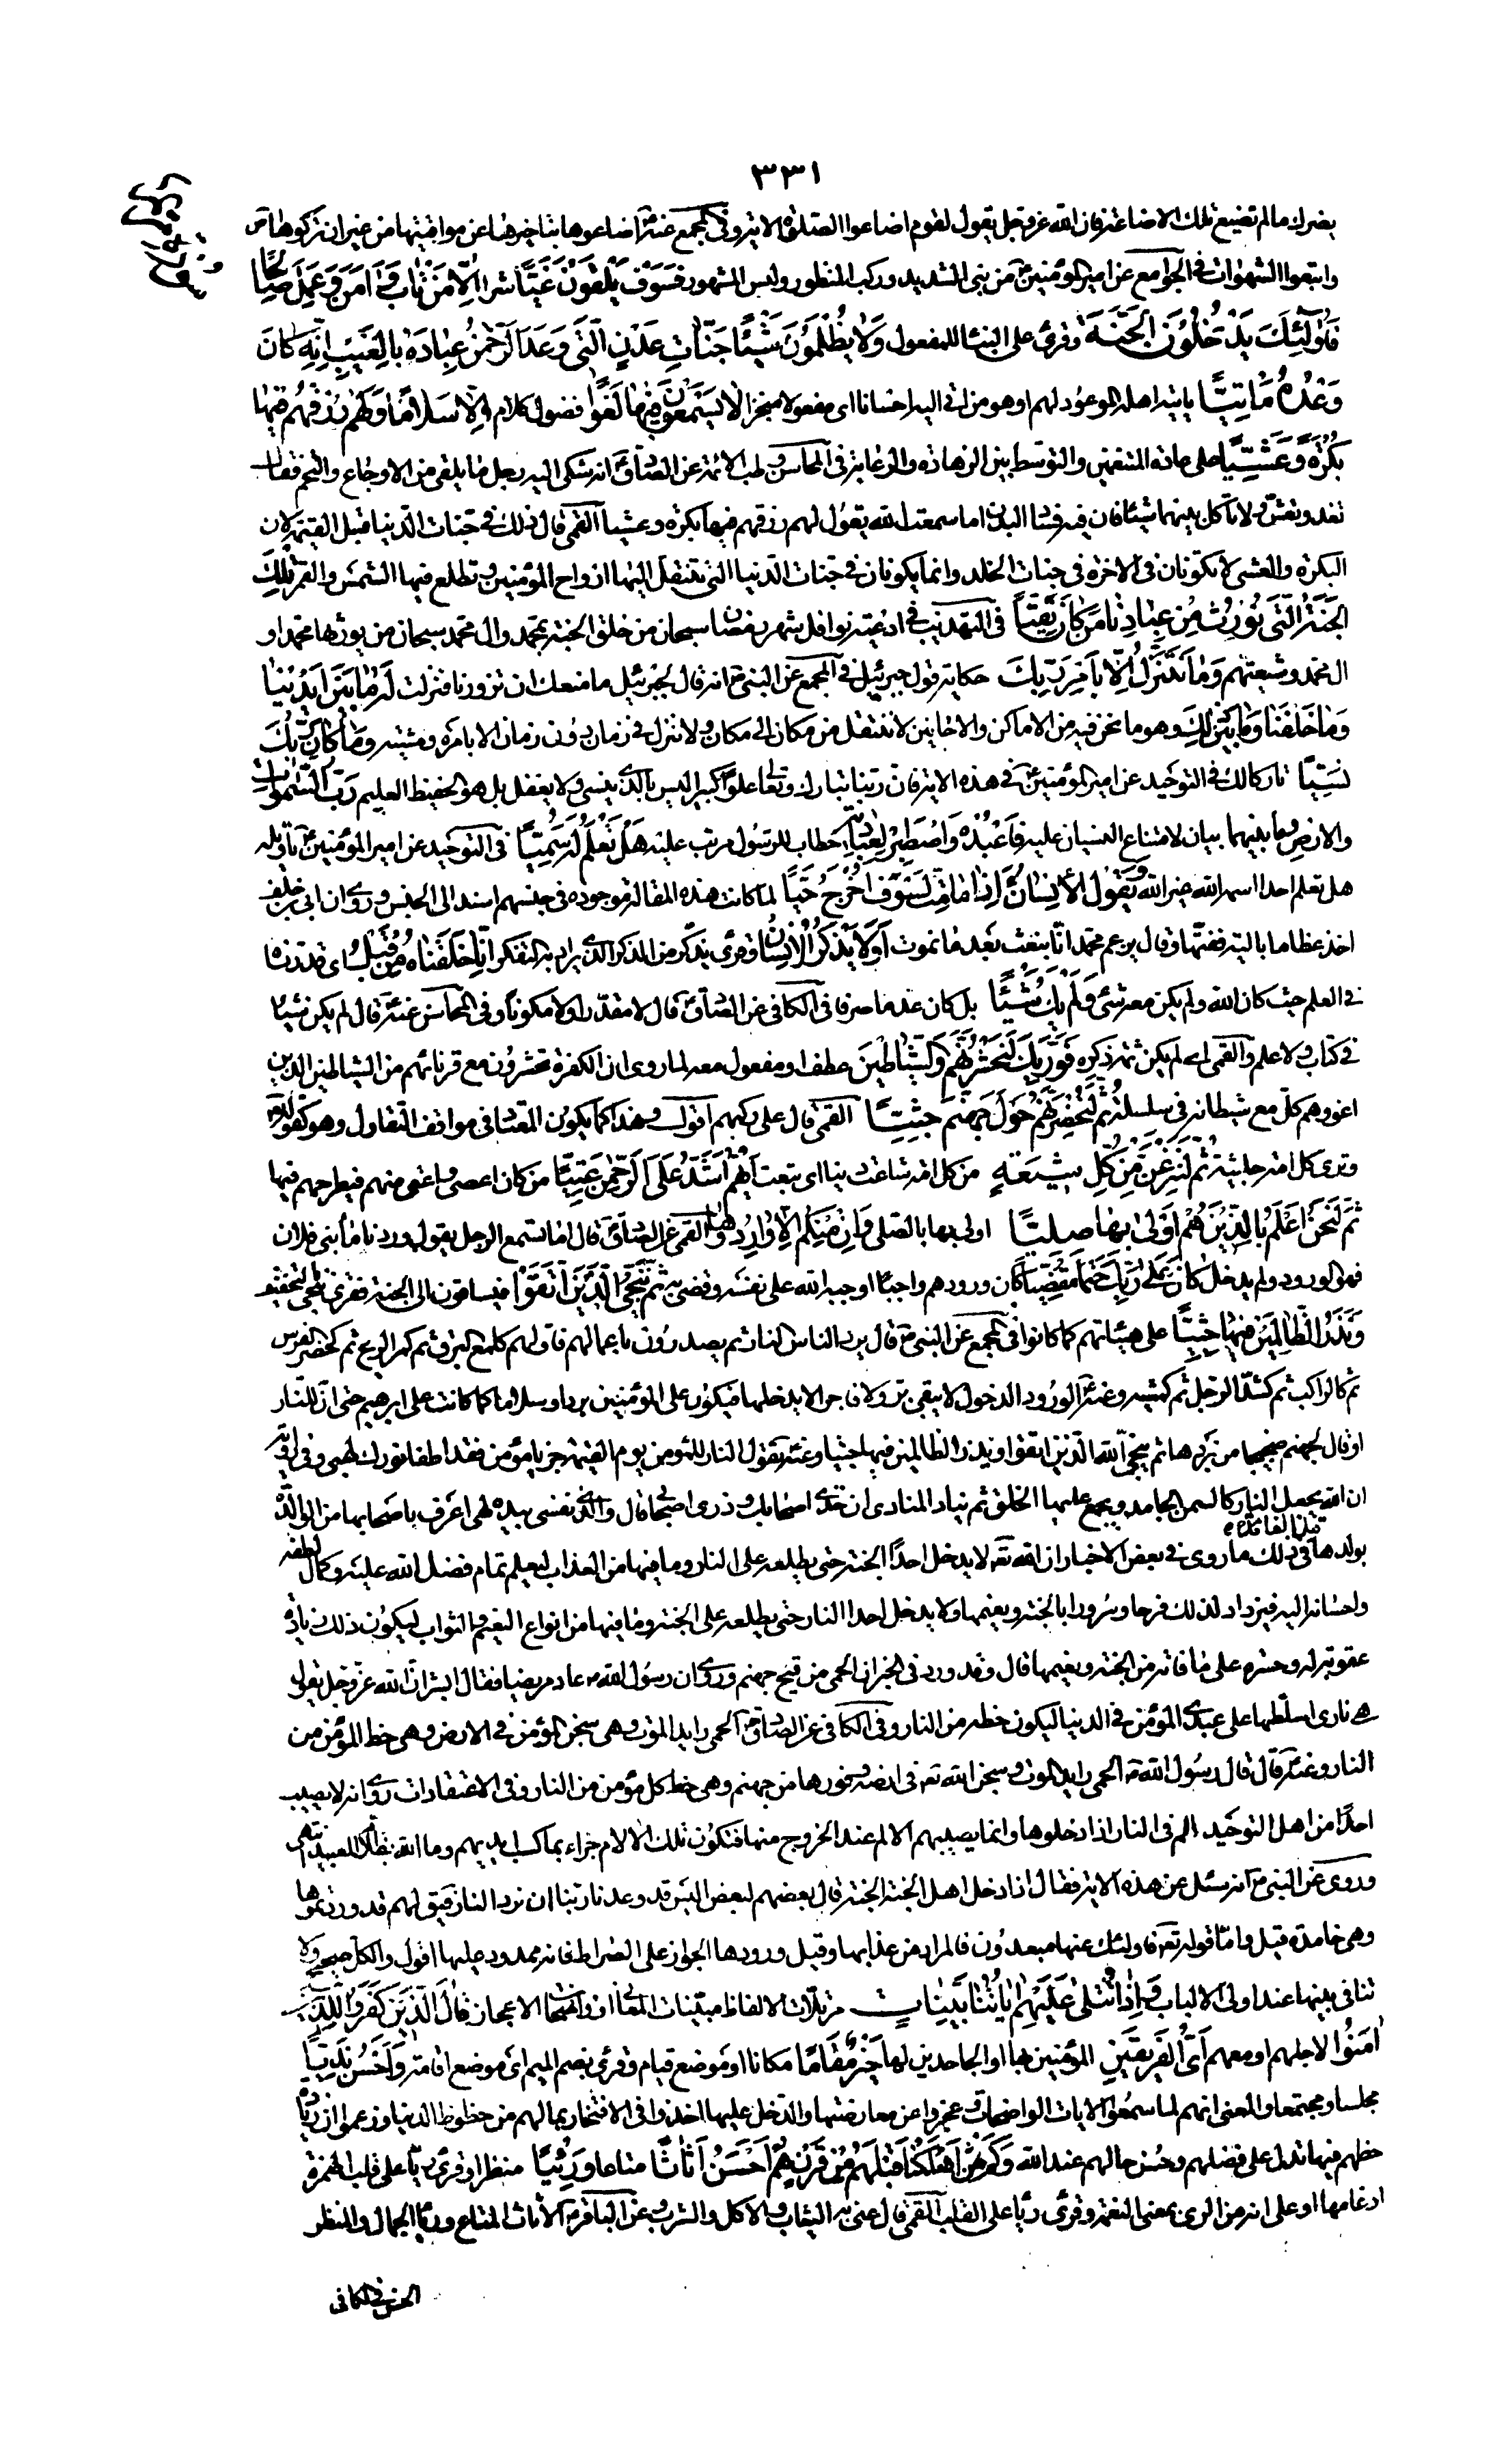 ٣٣١
يضرك ما لم تضيع تلك الاضاعة فان الله عز وجل يقول لقوم اضاعوا الصلوة الاية وفي المجمع عنه ع اضاعوها بتاخيرها عن مواقيتها من غير ان تركوها
واتبعوا الشهوات في الجوامع عن امير المؤمنين ع من بنى الشديد وركب المنظور ولبس المشهور فَسَوْفَ يَلْقَوْنَ غَيًّا شرا اِلّا مَنْ تابَ وَ آمَنَ وَ عَمِلَ صالِحًا
فَاُولٰئِكَ يَدْخُلُونَ الْجَنَّةَ وقرئ على البناء للمفعول وَلا يُظْلَمُونَ شَيْئًا جَنّاتِ عَدْنٍ الَّتي وَعَدَ الرَّحْمٰنُ عِبادَهُ بِالْغَيْبِ اِنَّهُ كانَ
وَعْدُهُ مَاْتِيًّا ياتيه اهله الموعود لهم او هو من اتى اليه احسانا اى مفعولا منجزا لا يَسْمَعُونَ فيها لَغْوًا فضول كلام اِلّا سَلامًا وَلَهُمْ رِزْقُهُمْ فيها
بُكْرَةً وَ عَشِيًّا على عادة المتنعمين والتوسط بين الزهادة والرغابة في المحاسن و طب الائمة عن الصادق ع انه شكى اليه رجل ما يلقى من الاوجاع والتخم فقال
تغد وتعش ولا تاكل بينهما شيئا فان فيه فساد البدن اما سمعت الله يقول لهم رزقهم فيها بكرة وعشيا القمى قال ذلك في جنات الدنيا قبل القيمة لان
البكرة والعشى لا تكونان في الاخرة في جنات الخلد وانما يكونان في جنات الدنيا التى تنتقل اليها ارواح المؤمنين و تطلع فيها الشمس والقمر تِلْكَ
الْجَنَّةُ الَّتي نُورِثُ مِنْ عِبادِنا مَنْ كانَ تَقِيًّا في التهذيب في ادعية نوافل شهر رمضان سبحان من خلق الجنة لمحمد وال محمد سبحان من يورثها محمدا و
ال محمد وشيعتهم وَما نَتَنَزَّلُ اِلّا بِاَمْرِ رَبِّكَ حكاية قول جبرئيل في المجمع عن النبى ص انه قال لجبرئيل ما منعك ان تزورنا فنزلت لَهُ ما بَيْنَ اَيْدينا
وَما خَلْفَنا وَما بَيْنَ ذلِكَ وهو ما نحن فيه من الاماكن والاحايين لا ننتقل من مكان الى مكان ولا ننزل في زمان دون زمان الا بامره ومشيته وَما كانَ رَبُّكَ
نَسِيًّا تاركا لك في التوحيد عن امير المؤمنين ع في هذه الاية فان ربنا تبارك وتعالى علوا كبيرا ليس بالذى ينسى ولا يغفل بل هو الحفيظ العليم رَبُّ السَّمٰواتِ
والارض وما بينهما بيان لامتناع النسيان عليه فَاعْبُدْهُ وَاصْطَبِرْ لِعِبادَتِهِ خطاب للرسول مرتب عليه هَلْ تَعْلَمُ لَهُ سَمِيًّا في التوحيد عن امير المؤمنين ع تاويله
هل تعلم احدا اسمه الله غير الله وَيَقُولُ الْاِنْسانُ ءَاِذا ما مِتُّ لَسَوْفَ اُخْرَجُ حَيًّا لما كانت هذه المقالة موجودة في جنسهم اسند الى الجنس وروى ان ابى بن خلف
اخذ عظاما بالية ففتها وقال يزعم محمد انا نبعث بعد ما نموت اَوَلا يَذْكُرُ الْاِنْسانُ وقرئ يذكر من الذكر الذى يراد به التفكر اَنّا خَلَقْناهُ مِنْ قَبْلُ اى قدرناه
في العلم حيث كان الله ولم يكن معه شئ وَلَمْ يَكُ شَيْئًا بل كان عدما صرفا في الكافى عن الصادق ع قال لا مقدرا ولا مكونا وفي المحاسن عنه ع قال لم يكن شيئا
في كتاب ولا علم والقمى اى لم يكن ثمه ذكره فَوَرَبِّكَ لَنَحْشُرَنَّهُمْ وَالشَّياطينَ عطف او مفعول معه لما روى ان الكفرة تحشرون مع قرنائهم من الشياطين الذين
اغووهم كل مع شيطانه في سلسلة ثُمَّ لَنُحْضِرَنَّهُمْ حَوْلَ جَهَنَّمَ جِثِيًّا القمى قال على ركبهم اقول وهذا كما يكون المعتاد في مواقف التقاول وهو كقوله
وترى كل امة جاثية ثُمَّ لَنَنْزِعَنَّ مِنْ كُلِّ شيعَةٍ من كل امة شاعت دينا اى تبعت اَيُّهُمْ اَشَدُّ عَلَى الرَّحْمٰنِ عِتِيًّا من كان اعصى واعتى منهم فيطرحهم فيها
ثُمَّ لَنَحْنُ اَعْلَمُ بِالَّذينَ هُمْ اَوْلى بِها صِلِيًّا اولى بها بالصلى وَاِنْ مِنْكُمْ اِلّا وارِدُها القمى عن الصادق ع قال اما تسمع الرجل يقول وردنا ماء بنى فلان
فهو الورود ولم يدخل كانَ عَلى رَبِّكَ حَتْمًا مَقْضِيًّا كان ورودهم واجبا اوجبه الله على نفسه وقضى به ثُمَّ نُنَجِّي الَّذينَ اتَّقَوْا فيساقون الى الجنة وقرئ ننجى بالتخفيف
وَنَذَرُ الظّالِمينَ فيها جِثِيًّا على هيئاتهم كما كانوا في المجمع عن النبى ص قال يرد الناس النار ثم يصدرون باعمالهم فاولهم كلمع البرق ثم كمر الريح ثم كحضر الفرس
ثم كالراكب ثم كشد الرجل ثم كمشيه وعنه ع الورود الدخول لا يبقى بر ولا فاجر الا يدخلها فيكون على المؤمنين بردا وسلاما كما كانت على ابرهيم حتى ان للنار
او قال لجهنم ضجيجا من بردها ثم ينجى الله الذين اتقوا ويذر الظالمين فيها جثيا وعنه ع تقول النار للمؤمن يوم القيمة جز يا مؤمن فقد اطفأ نورك لهبى وفي رواية
ان الله يجعل النار كالسمن الجامد ويجمع عليها الخلق ثم يناد المنادى ان خذى اصحابك وذرى اصحابى قال والذى نفسى بيده لهى اعرف باصحابها من الوالدة
بولدها قيل الفائدة في ذلك ما روى في بعض الاخبار ان الله تعه لا يدخل احدا الجنة حتى يطلعه على النار وما فيها من العذاب ليعلم تمام فضل الله عليه وكمال لطفه
واحسانه اليه فيزداد لذلك فرحا وسرورا بالجنة ونعيمها ولا يدخل احدا النار حتى يطلعه على الجنة وما فيها من انواع النعيم والثواب ليكون ذلك زيادة
عقوبة له وحسرة على ما فاته من الجنة ونعيمها قال وقد ورد في الخبر ان الحمى من قيح جهنم وروى ان رسول الله ص عاد مريضا فقال ابشر ان الله عز وجل يقول
هى نارى اسلطها على عبدى المؤمن في الدنيا ليكون حظه من النار وفي الكافى عن الصادق ع الحمى رايد الموت وهى سجن المؤمن في الارض وهى حظ المؤمن من
النار وعنه ع قال قال رسول الله ص الحمى رايد الموت وسجن الله تعه في ارضه وفورها من جهنم وهى حظ كل مؤمن من النار وفي الاعتقادات روى انه لا يصيب
احدا من اهل التوحيد الم في النار اذا دخلوها وانما يصيبهم الالم عند الخروج منها فتكون تلك الالام جزاء بما كسبت ايديهم وما الله بظلام للعبيد انتهى
وروى عن النبى ص انه سئل عن هذه الاية فقال اذا دخل اهل الجنة الجنة قال بعضهم لبعض اليس قد وعدنا ربنا ان نرد النار فيق لهم قد وردتموها
وهى خامدة قيل واما قوله تعه اولئك عنها مبعدون فالمراد من عذابها وقيل ورودها الجواز على الصراط فانه ممدود عليها اقول والكل صحيح ولا
تنافى بينها عند اولى الالباب وَاِذا تُتْلى عَلَيْهِمْ آياتُنا بَيِّناتٍ مرتلات الالفاظ مبينات المعانى او واضحات الاعجاز قالَ الَّذينَ كَفَرُوا لِلَّذينَ
آمَنُوا لاجلهم او معهم اَيُّ الْفَريقَيْنِ المؤمنين بها او الجاحدين لها خَيْرٌ مَقامًا مكانا او موضع قيام وقرئ بضم الميم اى موضع اقامة وَاَحْسَنُ نَدِيًّا
مجلسا ومجتمعا والمعنى انهم لما سمعوا الايات الواضحات وعجزوا عن معارضتها والدخل عليها اخذوا في الافتخار بمالهم من حظوظ الدنيا وزعموا ان زيادة
حظهم فيها تدل على فضلهم وحسن حالهم عند الله وَكَمْ اَهْلَكْنا قَبْلَهُمْ مِنْ قَرْنٍ هُمْ اَحْسَنُ اَثاثًا متاعا وَرِئْيًا منظرا وقرئ ريا على قلب الهمزة و
ادغامها او على انه من الرى بمعنى النعمة وقرئ ريئا على القلب القمى قال عنى به الثياب والاكل والشرب وعن الباقر ع الاثاث المتاع وريا الجمال والمنظر
الحسن في الكافى